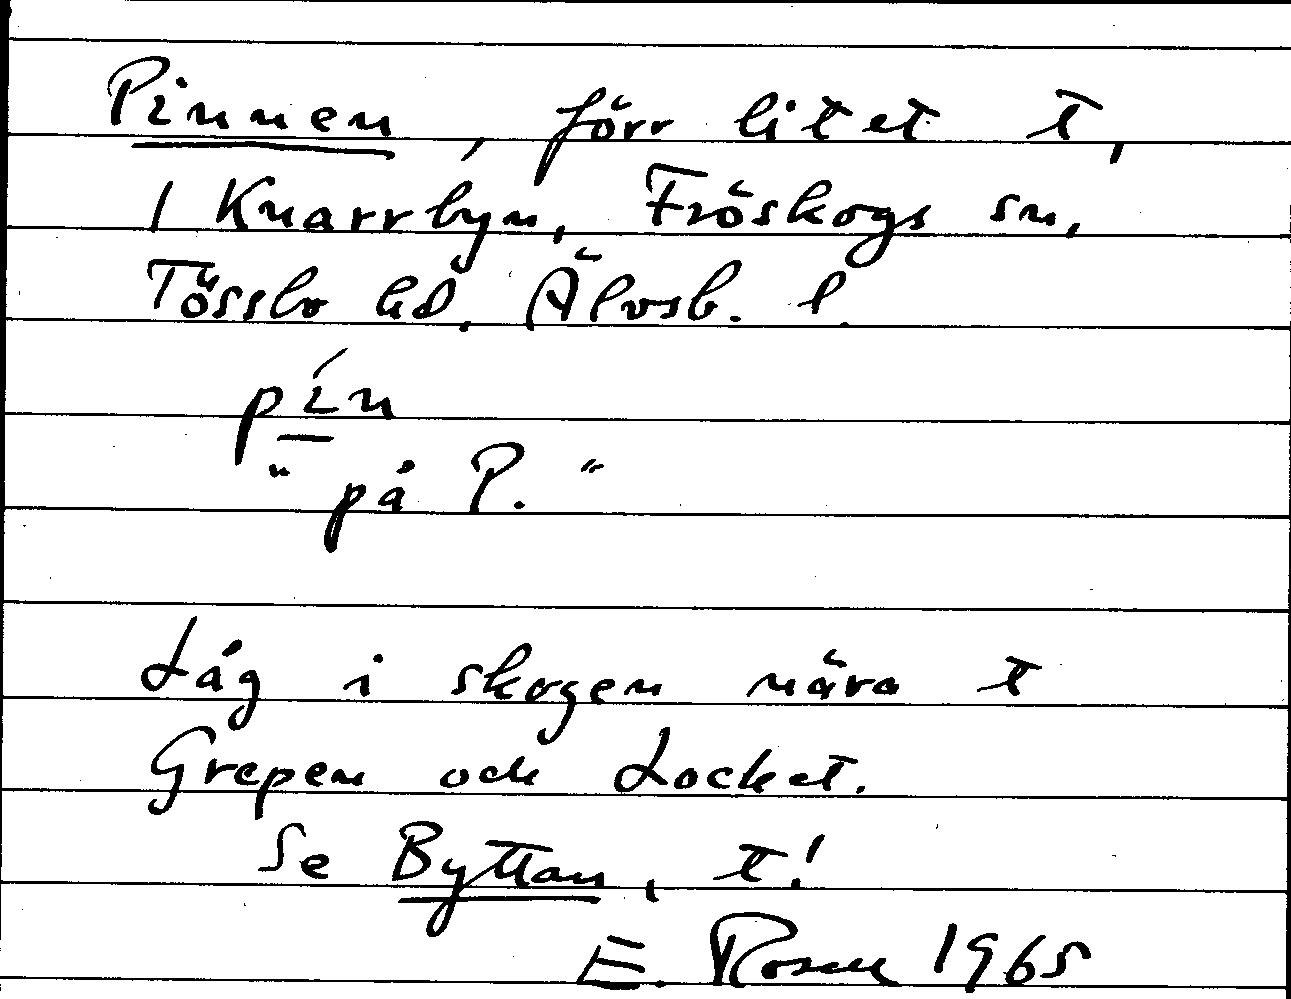 Pinnen, förr litet t,
i Knarrbyn, Fröskogs sn,
Tössbo hd. Älvsb. l.
pín
" på P. "
Låg i skogen nära t
Grepen och Locket.
Se Byttan, t!
E. Rosell 1965